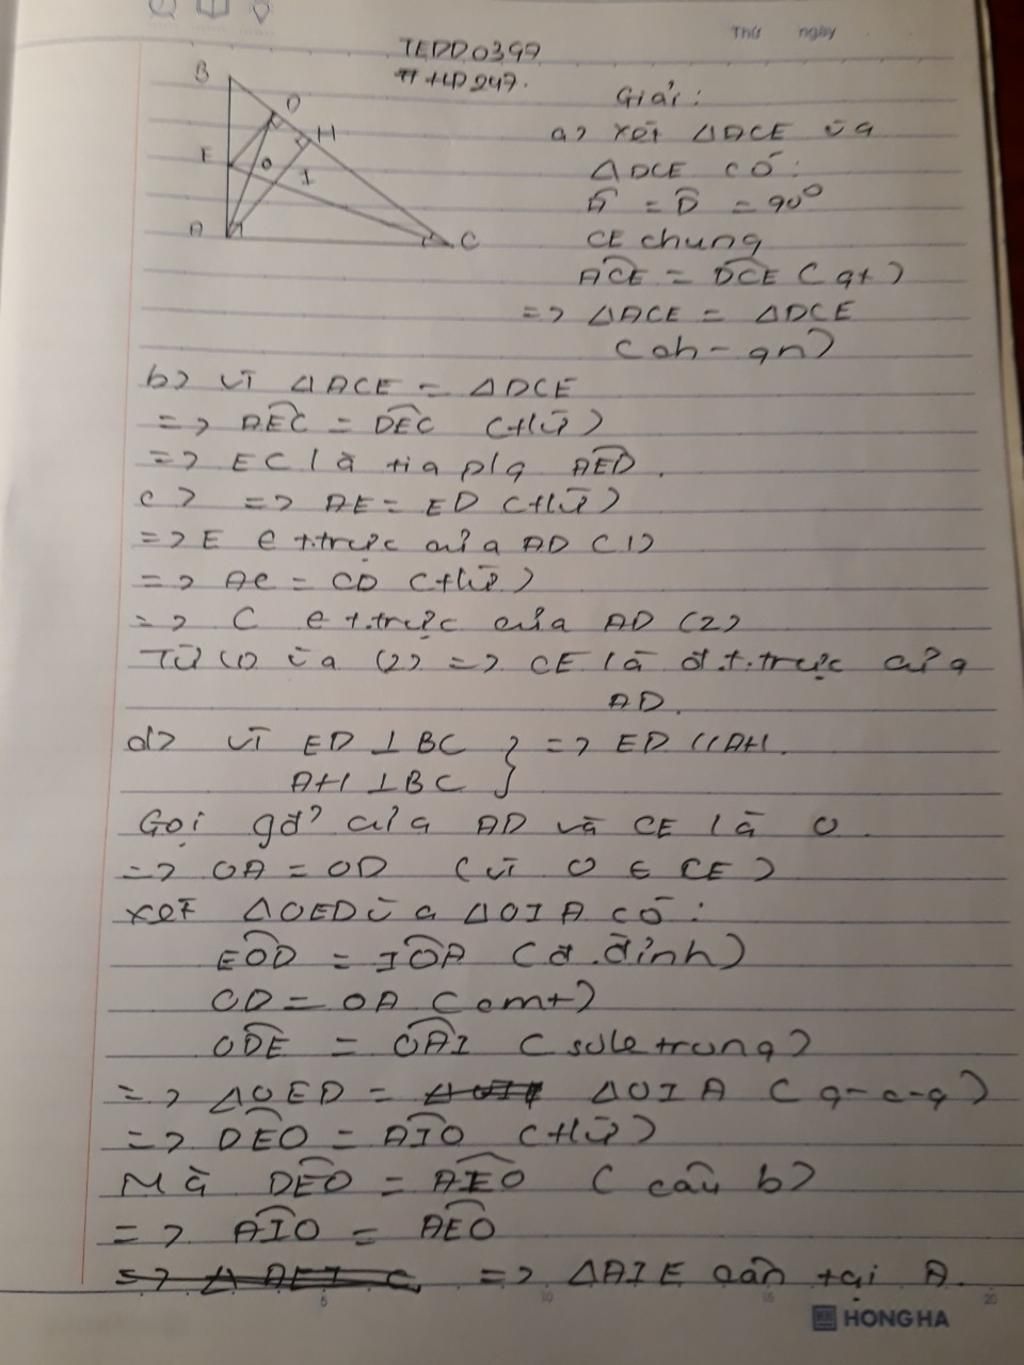 Thứ ngày
TEDD0397
#HD247.
B
D
H
E
O
I
A
C
Giải:
a> xét ΔACE và
ΔDCE có:
Â = D̂ = 90°
CE chung
ACE = DCE (gt)
=> ΔACE = ΔDCE
(ch-gn)
b> vì ΔACE = ΔDCE
=> AEC = DEC (tứ)
=> EC là tia p/g AED.
c> => AE = ED (tứ)
=> E ∈ t.trực của AD (1)
=> AC = CD (tứ)
=> C ∈ t.trực của AD (2)
Từ (1) và (2) => CE là đ.t.trực của
AD.
d> vì ED ⊥ BC } => ED // AH.
AH ⊥ BC
Gọi gđ² của AD và CE là O.
=> OA = OD (vì O ∈ CE)
xét ΔOED và ΔOIA có:
EOD = IOA (đ.đỉnh)
OD = OA (cmt)
ODE = OAI (sole trong)
=> ΔOED = ΔOIA (g-c-g)
=> DEO = AIO (tứ)
Mà DEO = AEO (câu b)
=> AIO = AEO
=> ΔAIE cân tại A.
5 10 15 20
HONG HA